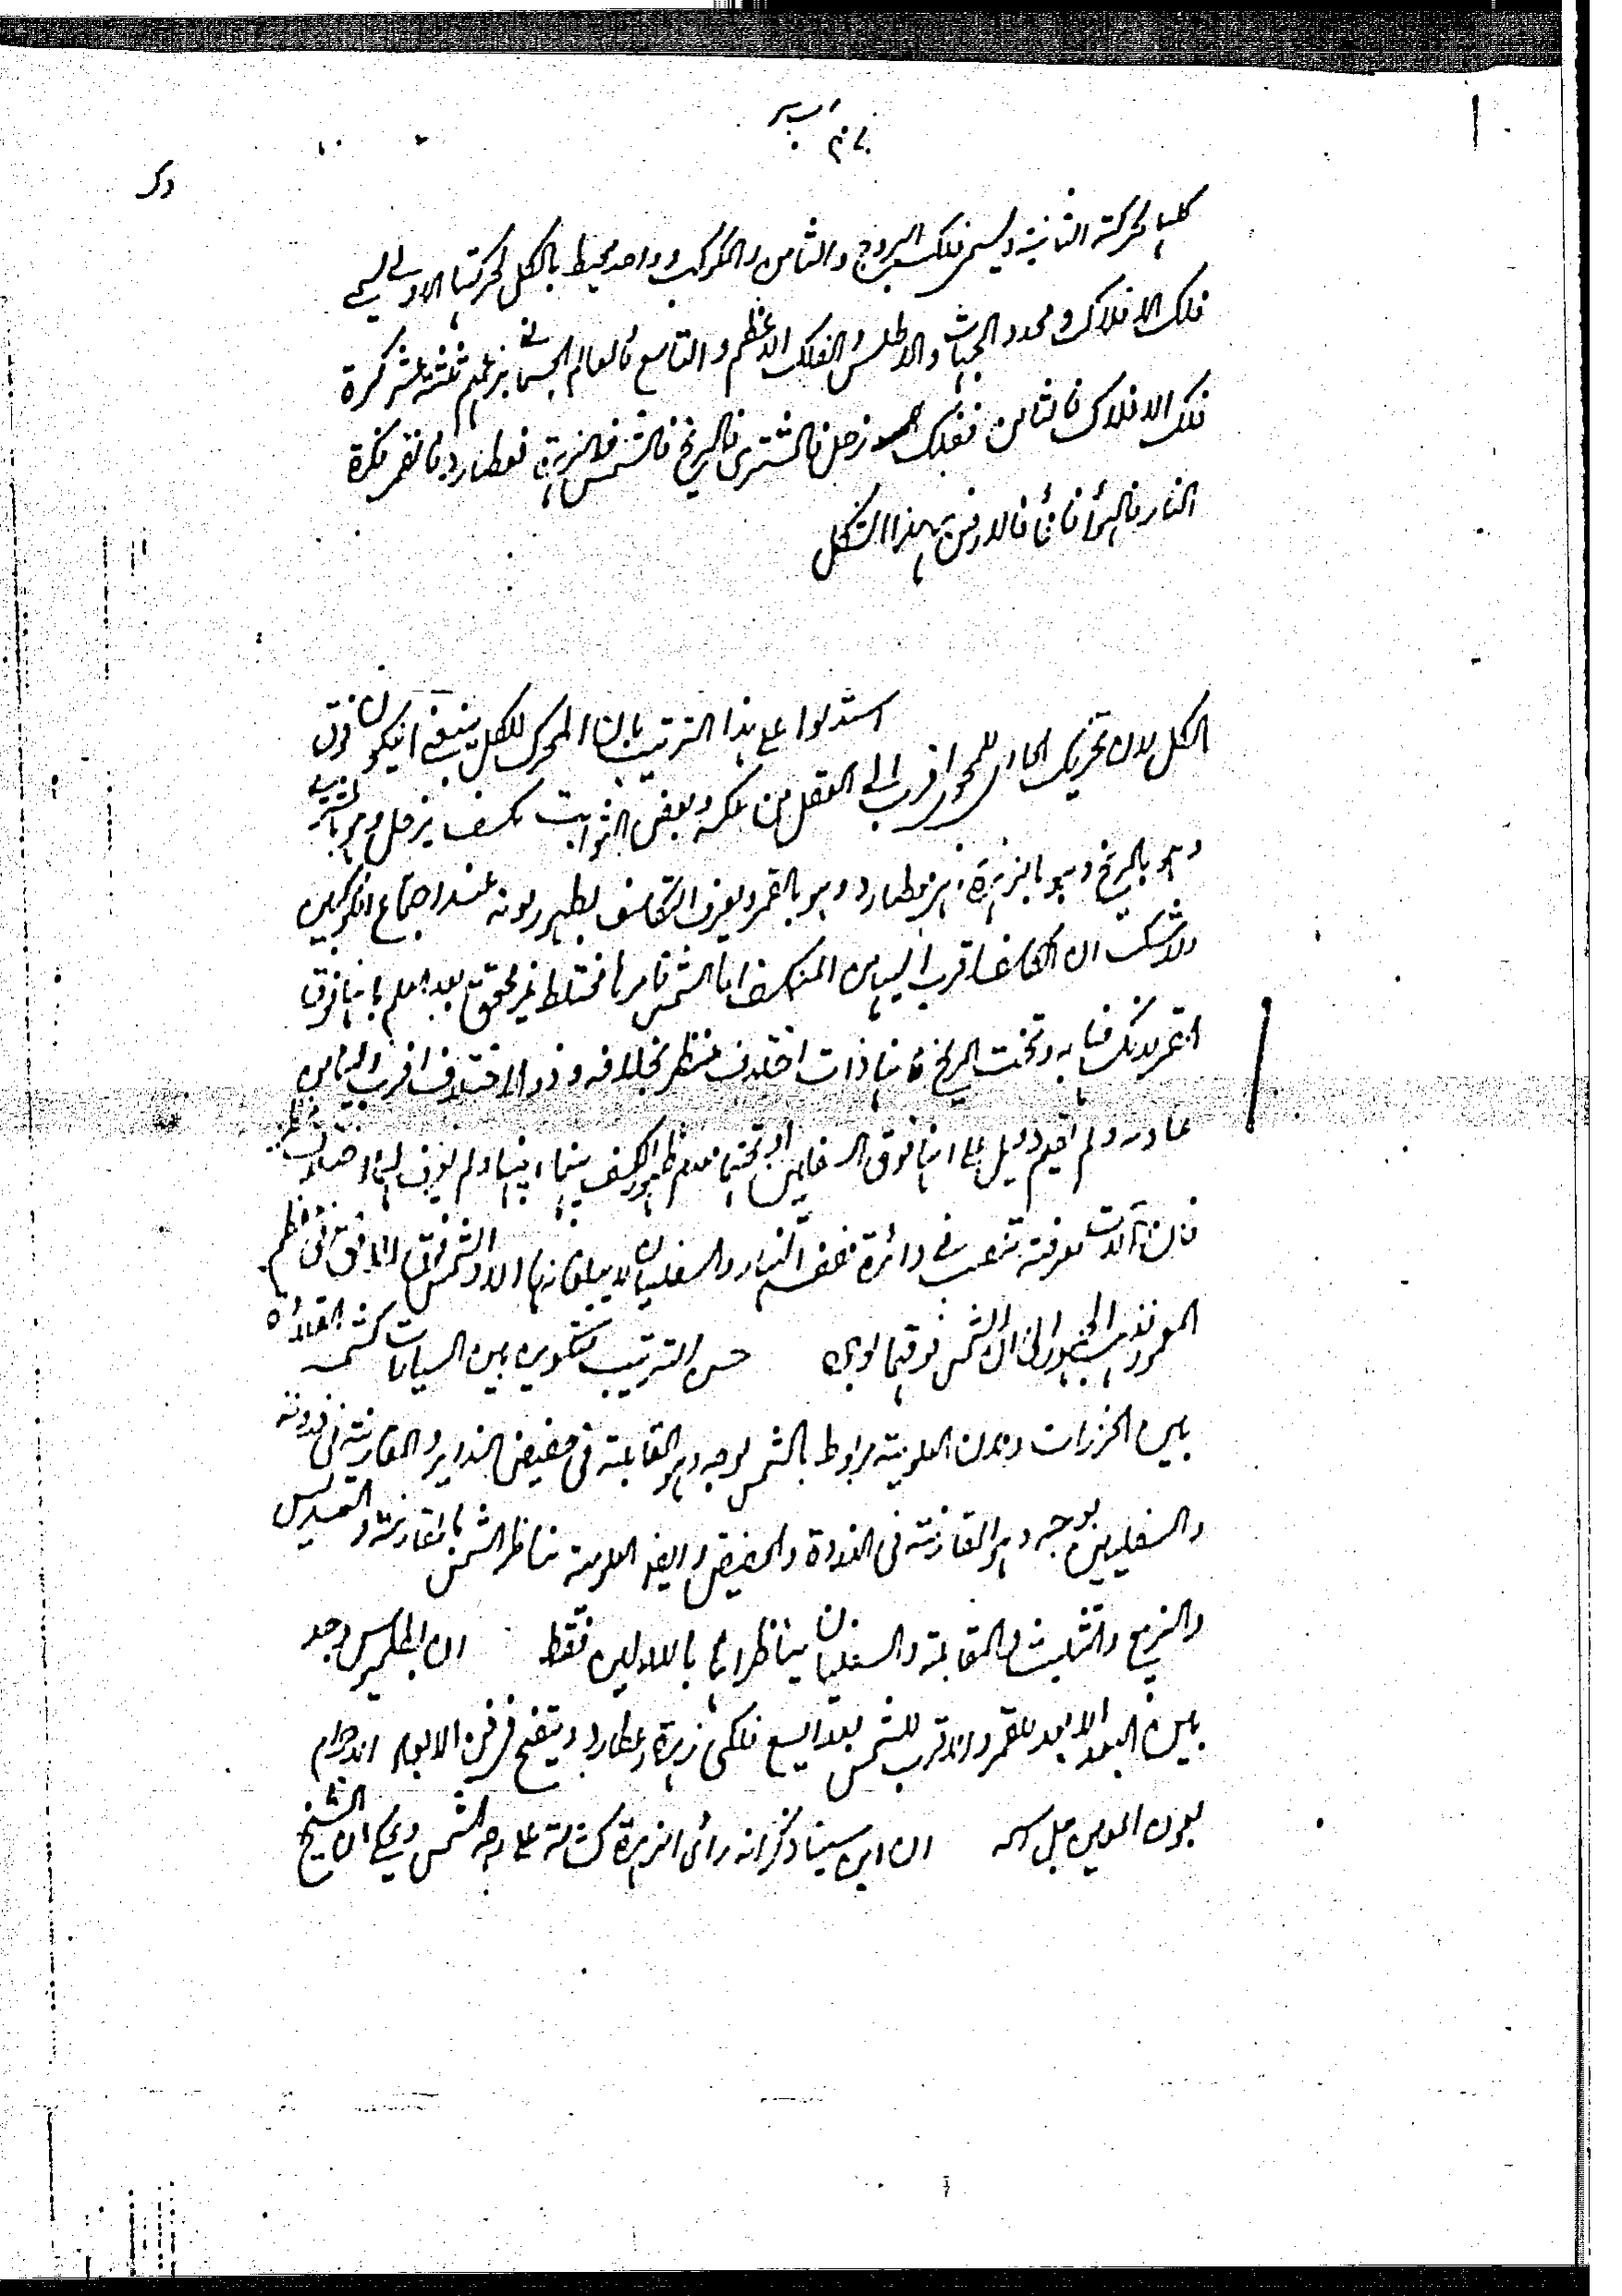 كلها لحركته الثانية ويسمى فلك البروج والثامن والكواكب وواحد محيط بالكل لحركتها الاولى يسمى
فلك الافلاك و محدد الجهات والاطلس والفلك الاعظم والتاسع فالعالم الجسماني بزعمهم ثلثة عشر كرة
فلك الافلاك فالثامن ففلك زحل فالمشترى فالمريخ فالشمس فالزهرة فعطارد فالقمر فكرة
النار فالهواء فالماء فالارض بهذا الشكل
استدلوا على هذا الترتيب بان المحرك للكل ينبغي ان يكون فوق
الكل لان تحريك الحاوى للمحوى اقرب الى العقل من عكسه وبعض الثوابت يكسف بزحل وهو بالمشترى
وهو بالمريخ وهو بالزهرة وهى بعطارد وهو بالقمر ويعرف الكاسف بظهور لونه عند اجتماع الكوكبين
ولا شك ان الكاسف اقرب الينا من المنكسف اما الشمس فامرها مختلط غير محقق بعد العلم بانها فوق
القمر لانكسافها به وتحت المريخ فانها ذات اختلاف منظر بخلافه وذو الاختلاف اقرب الينا من
عادمه ولم اقيم دليل على انها فوق السفليين او تحتهما لعدم ظهور الكسف بينهما وبينها ولم يعرف لهما اختلاف منظر
فان آلات معرفته تنصب في دائرة نصف النهار والسفليان لا يبلغانها الا والشمس فوق الافق في معظم
المعمورة فذهب الجمهور الى ان الشمس فوقهما لوجوه حسن الترتيب لتكون بين السيارات كشمسة القلادة
بين الخرزات ولان العلوية مربوط بالشمس لوجه وهو المقابلة فى حضيض التداوير والمقارنة فى ذروته
والسفليين بوجه وهو المقارنة فى الذروة والحضيض وايضا العلوية تناظر الشمس بالمقارنة والتسديس
والتربيع والتثليث والمقابلة والسفليان يناظرانها بالاولين فقط ان بطلميوس وجد
بين البعد الابعد للقمر والاقرب للشمس بعدا يسع فلكى زهرة وعطارد ويتضح فى فن الابعاد والاجرام
بعون المعين جل اسمه ان ابن سينا ذكر انه رأى الزهرة كشامة على وجه الشمس وحكى ان الشيخ